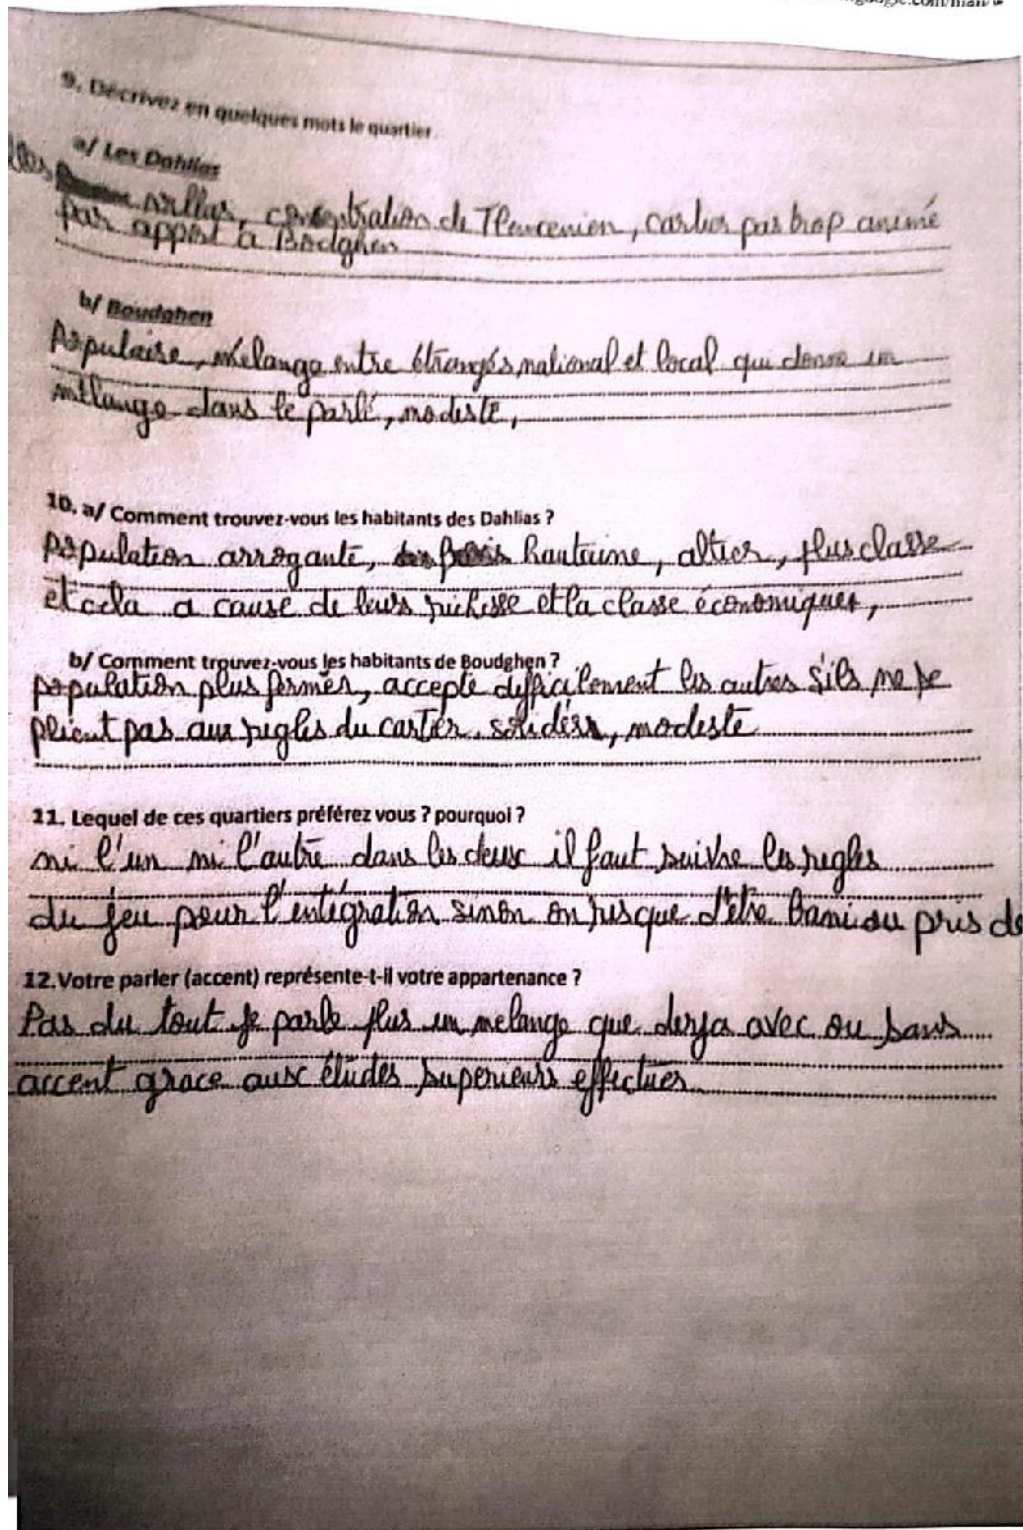 9. Décrivez en quelques mots le quartier
a/ Les Dahlias
des villas, concentration de Tlemcenien, cartier pas trop animé
par apport à Bodghen
b/ Boudghen
Populaire, mélange entre étrangés, national et local qui donne un
mélange dans le parlé, modeste,
10. a/ Comment trouvez-vous les habitants des Dahlias ?
population arrogante, hautaine, altier, plus classe
et cela a cause de leurs richesse et la classe économiques,
b/ Comment trouvez-vous les habitants de Boudghen ?
population plus fermés, accepte difficilement les autres s'ils ne se
plient pas aux regles du cartier, solidére, modeste
11. Lequel de ces quartiers préférez vous ? pourquoi ?
ni l'un ni l'autre dans les deux il faut suivre les regles
du jeu pour l'intégration sinon on risque d'être bani ou pris de
12.Votre parler (accent) représente-t-il votre appartenance ?
Pas du tout je parle plus un melange que derja avec ou sans
accent grace aux études superieurs effectues